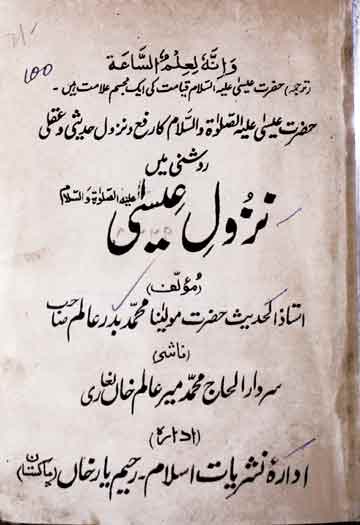 100
وَاِنَّهٗ لَعِلْمٌ لِّلسَّاعَة
(ترجمہ) حضرت عیسیٰ علیہ السلام قیامت کی ایک مجسم علامت ہیں۔
حضرت عیسیٰ علیہ الصلوٰۃ والسلام کا رفع و نزول حدیثی و عقلی
روشنی میں
نزولِ عیسیٰ علیہ الصلوٰۃ والسلام
(مؤلف)
استاذ الحدیث حضرت مولٰنا محمد بدر عالم صاحب
(ناشر)
سردار الحاج محمد میر عالم خاں لغاری
(ادارہ)
ادارۂ نشریات اسلام۔ رحیم یار خاں (پاکستان)